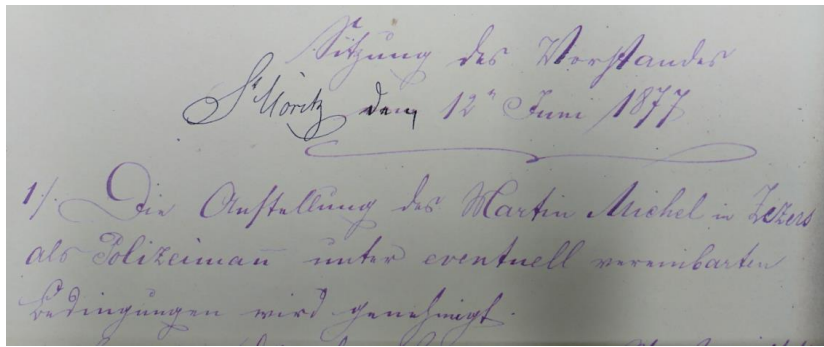 Sitzung des Vorstandes
St Moritz den 12n Juni 1877
1/. Die Anstellung des Martin Michel in Zizers
als Polizeimañ unter eventuell vereinbarten
Bedingungen wird genehmigt.